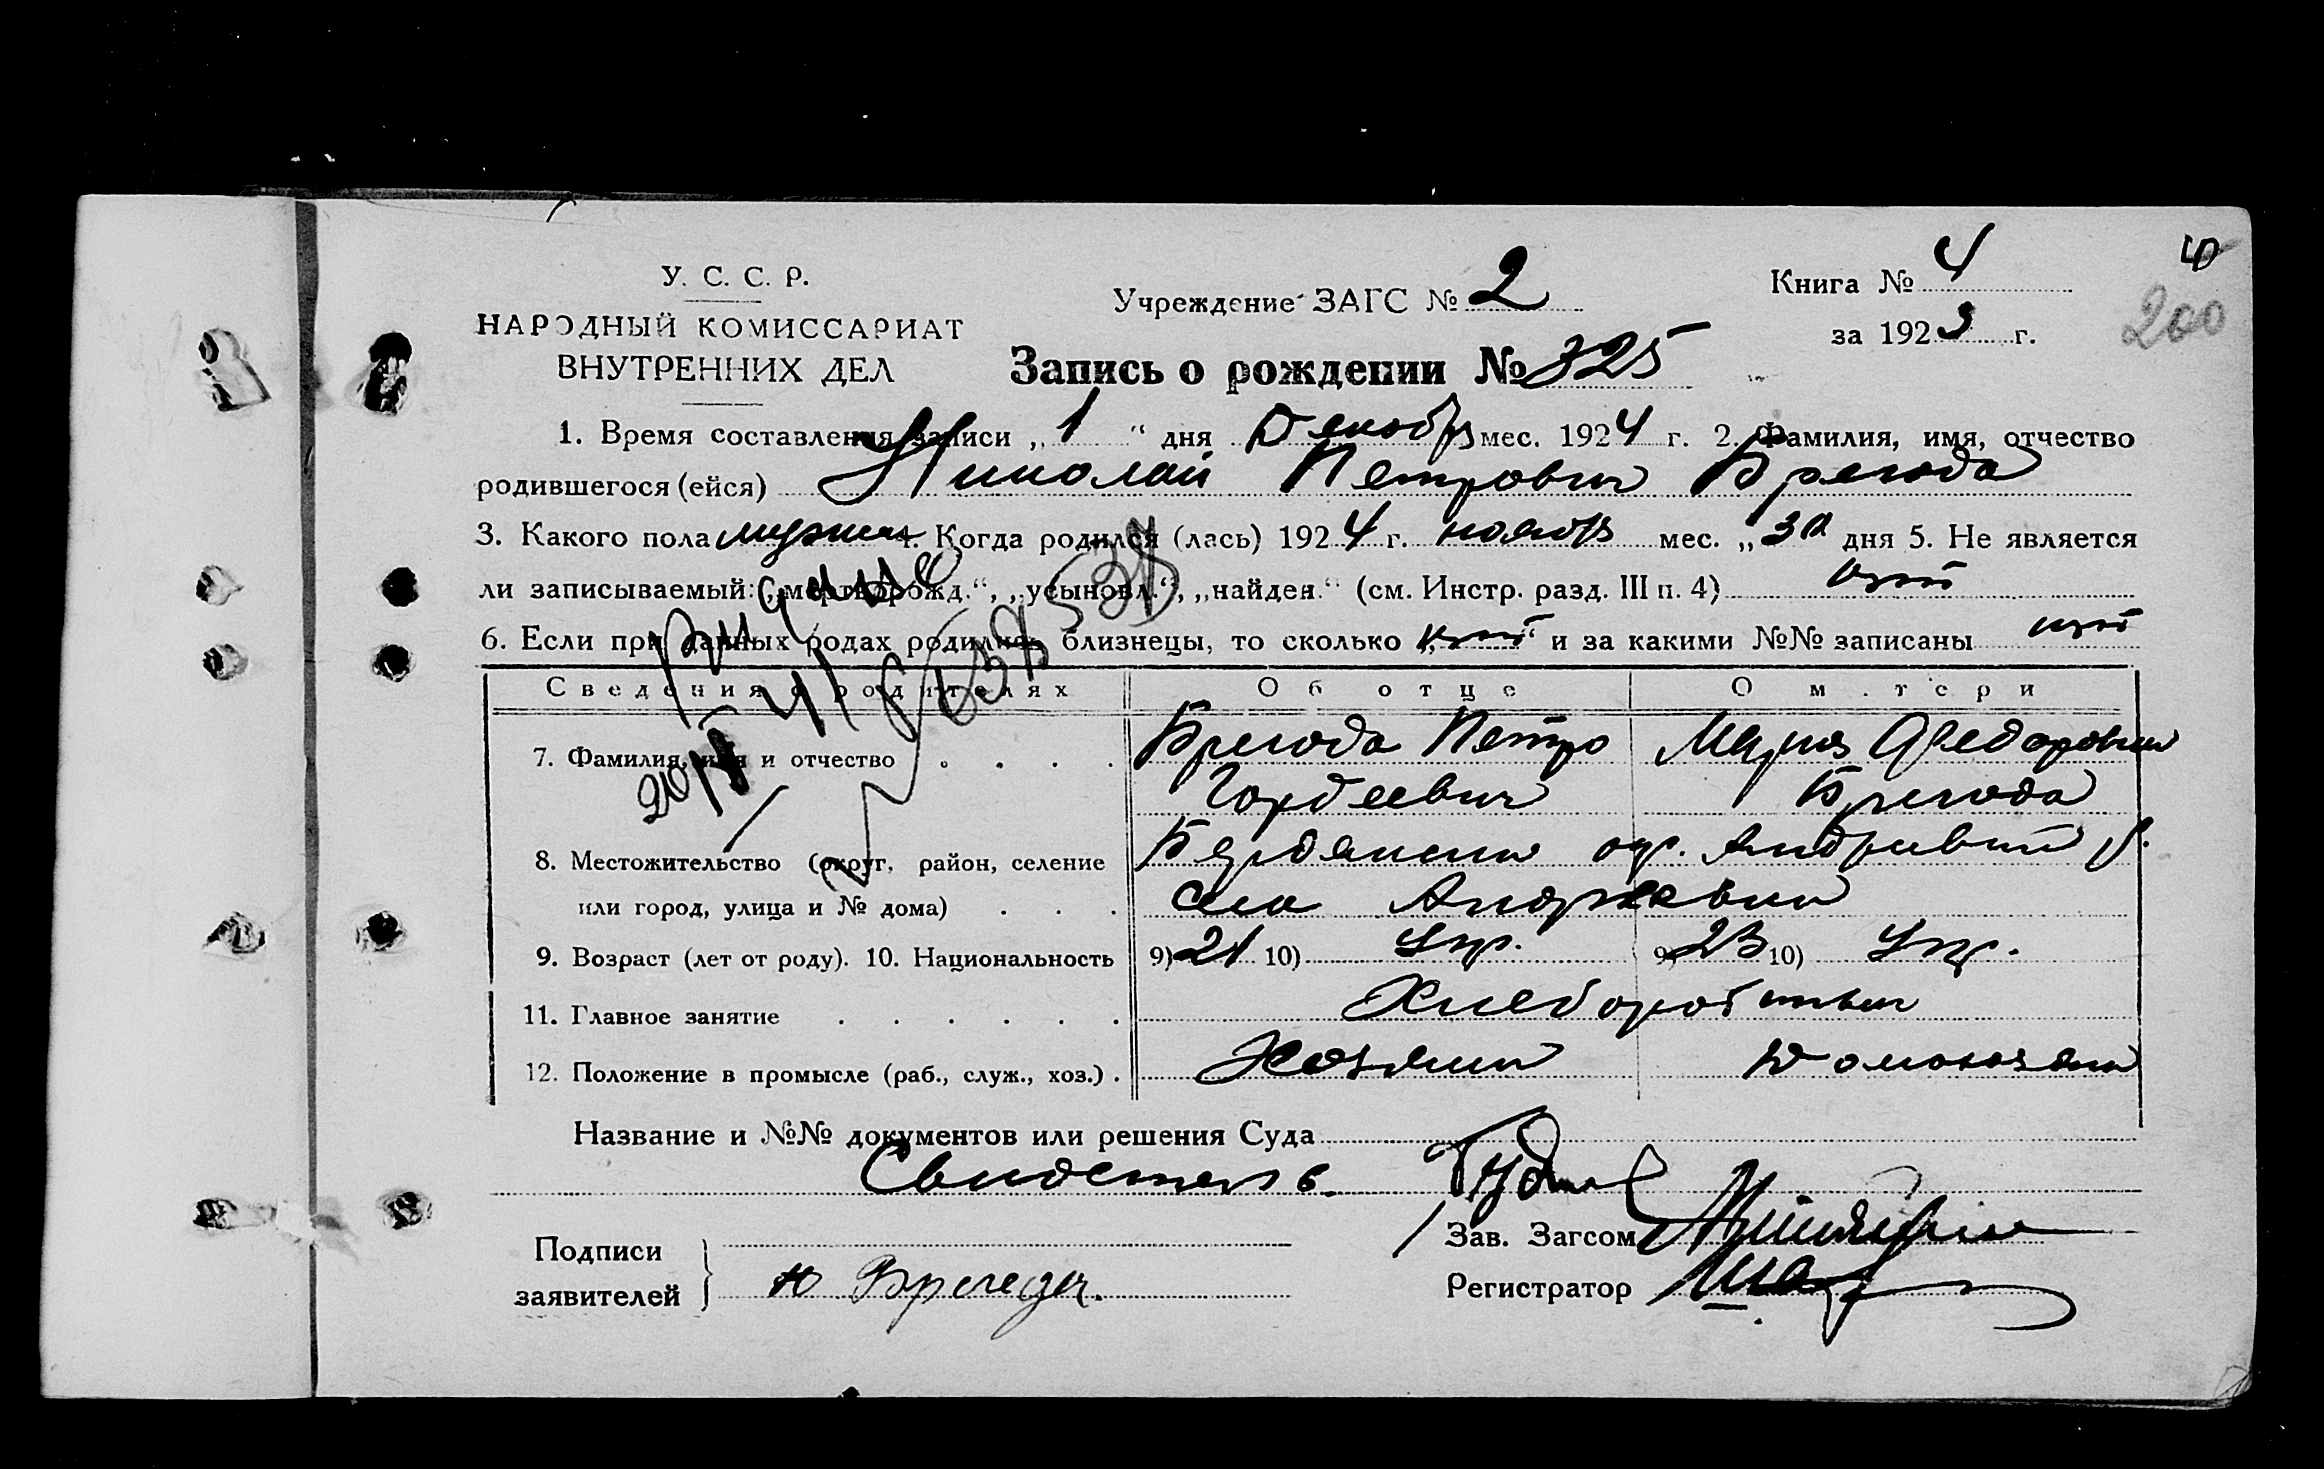 У. С. С. Р.
НАРОДНЫЙ КОМИССАРИАТ
ВНУТРЕННИХ ДЕЛ
Учреждение ЗАГС № 2
Книга № 4
за 1923 г.
200
Запись о рождении № 325
1. Время составления записи „1“ дня Декабр мес. 1924 г. 2. Фамилия, имя, отчество
родившегося (ейся) Николай Петрович Брегода
3. Какого пола мужск 4. Когда родился (лась) 1924 г. ноябр мес. „30 дня 5. Не является
ли записываемый: „мертворожд.“, „усыновл.“, „найден.“ (см. Инстр. разд. III п. 4) нет
6. Если при данных родах родились близнецы, то сколько „нет“ и за какими №№ записаны нет
Сведения о родителях Об отце О матери
7. Фамилия, имя и отчество . . . . Брегода Петро Мария Федоровна
Гордеевич Брегода
8. Местожительство (округ, район, селение Бердянский ок. Андриевский р.
или город, улица и № дома) . . . село Андреевка
9. Возраст (лет от роду). 10. Национальность 9) 21 10) Укр. 9) 23 10) Укр.
11. Главное занятие . . . . . . Хлеборобство
12. Положение в промысле (раб., служ., хоз.) . Хозяин Домохозяй
Название и №№ документов или решения Суда
Свидетель
Подписи
заявителей
Брегеда.
Зав. Загсом
Регистратор